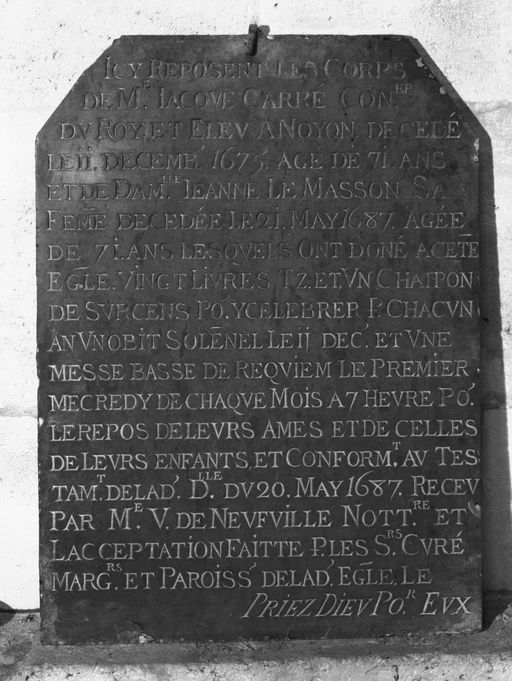 ICY REPOSENT LES CORPS
DE M.R IACQVE CARRE CON.ER
DV ROY. ET ELEV A NOYON, DECEDÉ
LE 11. DECEMB. 1675. AGÉ DE 71. ANS
ET DE DAM.LLE IEANNE LE MASSON SA
FEME DECEDÉE LE 21. MAY 1687. AGÉE
DE 71. ANS LESQVELS ONT DONÉ A CETE
EGLE. VINGT LIVRES TZ. ET VN CHAPON
DE SVRCENS PO. Y CELEBRER P. CHACVN
AN VN OBIT SOLENEL LE 11 DEC. ET VNE
MESSE BASSE DE REQVIEM LE PREMIER
MECREDY DE CHAQVE MOIS A 7 HEVRE PO.
LE REPOS DE LEVRS AMES ET DE CELLES
DE LEVRS ENFANTS, ET CONFORM.T AV TES
TAM.T DE LAD. D.LLE DV 20. MAY 1687. RECEV
PAR M.E V. DE NEVFVILLE NOTT.RE ET
L'ACCEPTATION FAITTE P. LES S.RS CVRÉ
MARG.RS ET PAROISS. DE LAD. EGLE. LE
PRIEZ DIEV PO.R EVX